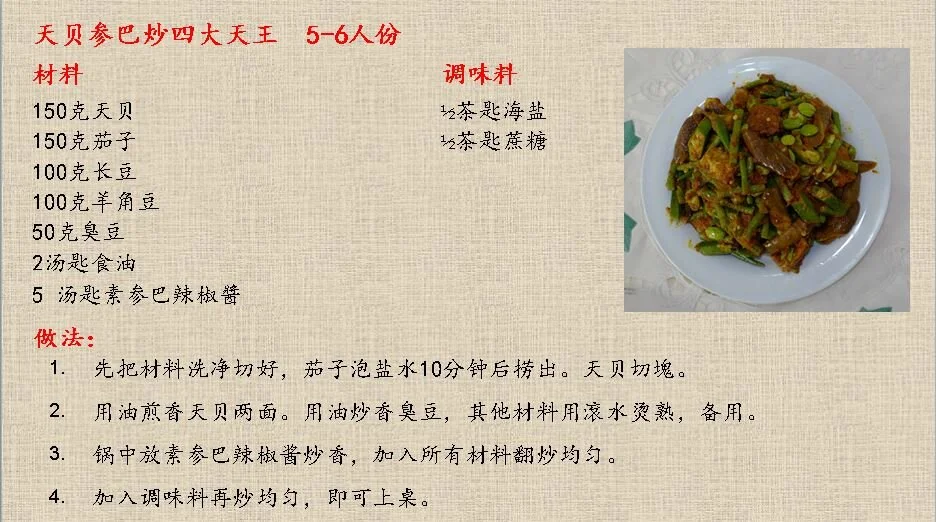 天贝参巴炒四大天王 5-6人份
材料
调味料
150克天贝
½茶匙海盐
150克茄子
½茶匙蔗糖
100克长豆
100克羊角豆
50克臭豆
2汤匙食油
5 汤匙素参巴辣椒酱
做法：
1. 先把材料洗净切好，茄子泡盐水10分钟后捞出。天贝切塊。
2. 用油煎香天贝两面。用油炒香臭豆，其他材料用滚水烫熟，备用。
3. 锅中放素参巴辣椒酱炒香，加入所有材料翻炒均匀。
4. 加入调味料再炒均匀，即可上桌。